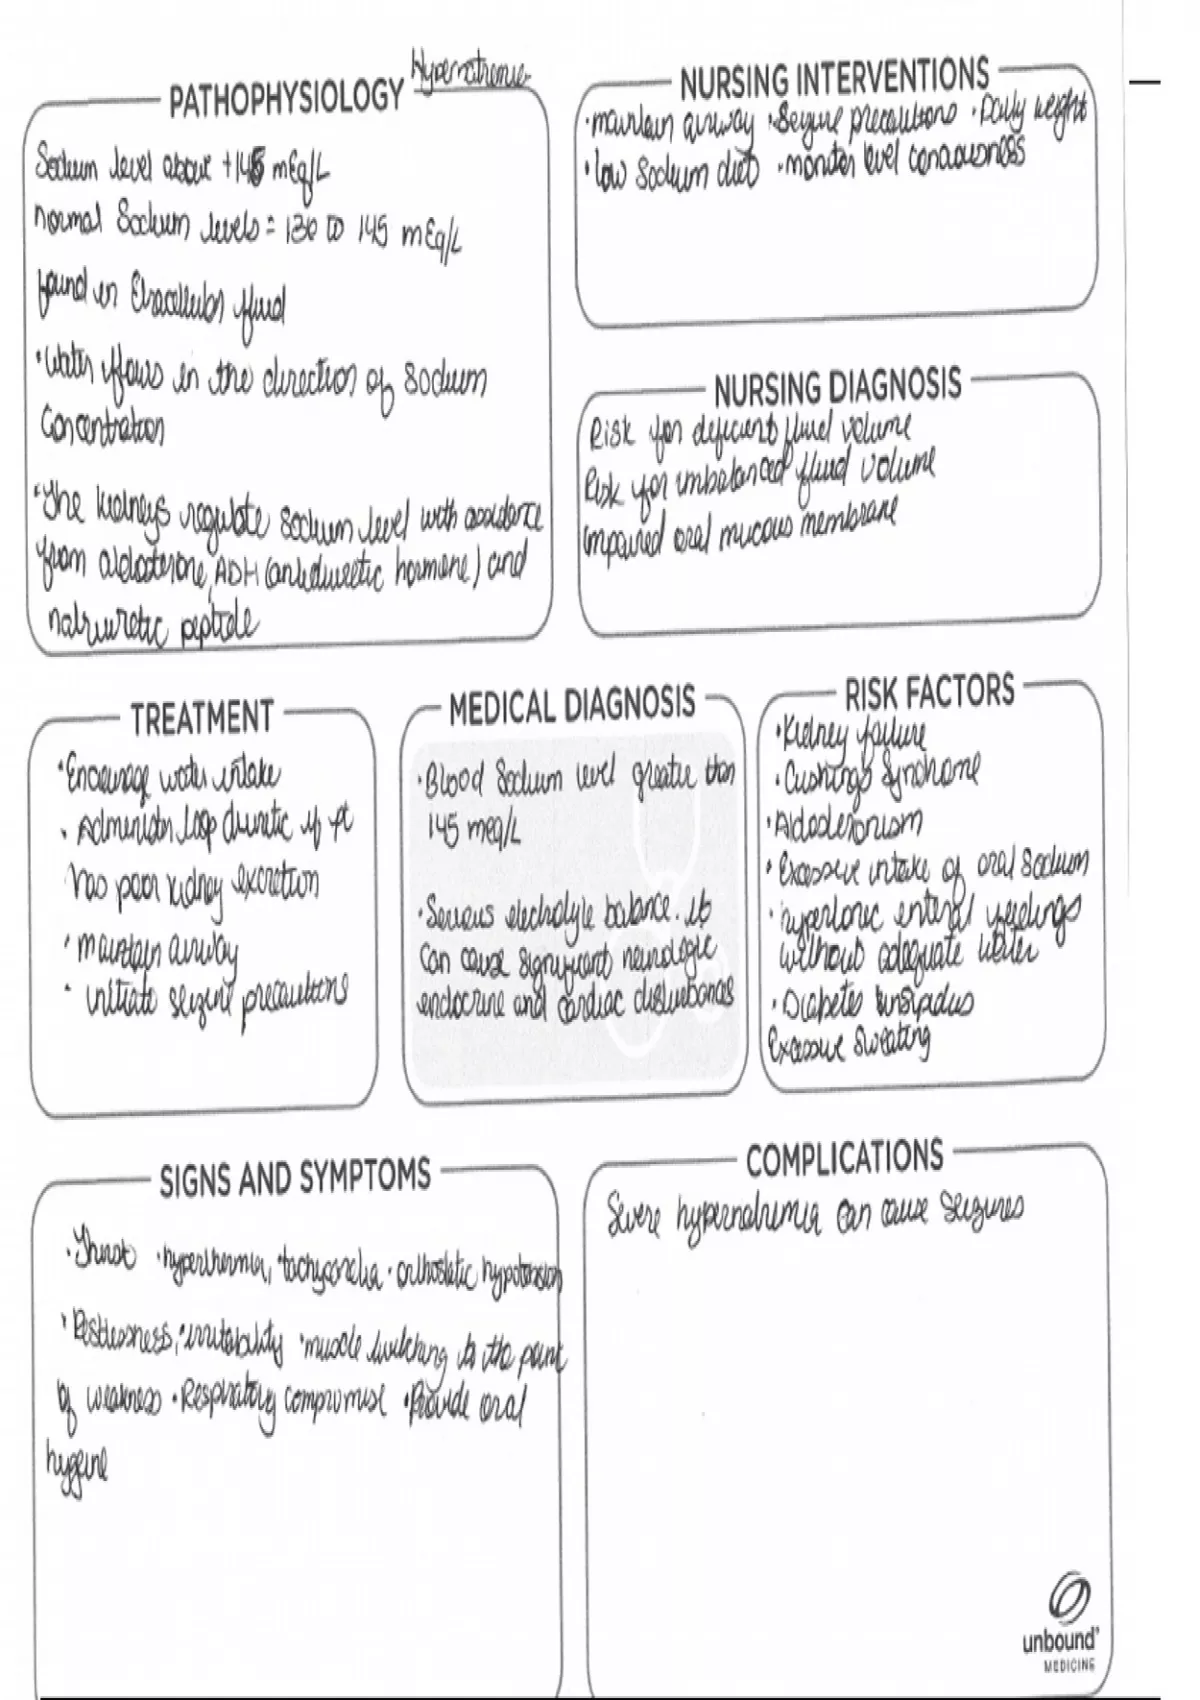 Hypernatremia
PATHOPHYSIOLOGY
Sodium level above +145 mEq/L
normal Sodium levels = 136 to 145 mEq/L
found in Extracellular fluid
• Water flows in the direction of Sodium
Concentration
• The kidneys regulate sodium level with assistance
from aldosterone, ADH (antidiuretic hormone) and
natriuretic peptide
NURSING INTERVENTIONS
• maintain airway • Seizure precautions • Daily weight
• low Sodium diet • monitor level consciousness
NURSING DIAGNOSIS
Risk for deficient fluid volume
Risk for imbalanced fluid volume
impaired oral mucous membrane
TREATMENT
• Encourage water intake
• Administer loop diuretic if pt
has poor kidney excretion
• maintain airway
• initiate seizure precautions
MEDICAL DIAGNOSIS
• Blood Sodium level greater than
145 meq/L
• Serious electrolyte balance. it
can cause significant neurologic
endocrine and cardiac disturbances
RISK FACTORS
• Kidney failure
• Cushings Syndrome
• Aldosteronism
• Excessive intake of oral Sodium
• hypertonic enteral feedings
without adequate water
• Diabetes insipidus
Excessive Sweating
SIGNS AND SYMPTOMS
• Thirst • hyperthermia, tachycardia • orthostatic hypotension
• Restlessness, • irritability • muscle twitching to the point
of weakness • Respiratory compromise • Provide oral
hygeine
COMPLICATIONS
Severe hypernatremia can cause seizures
unbound
MEDICINE